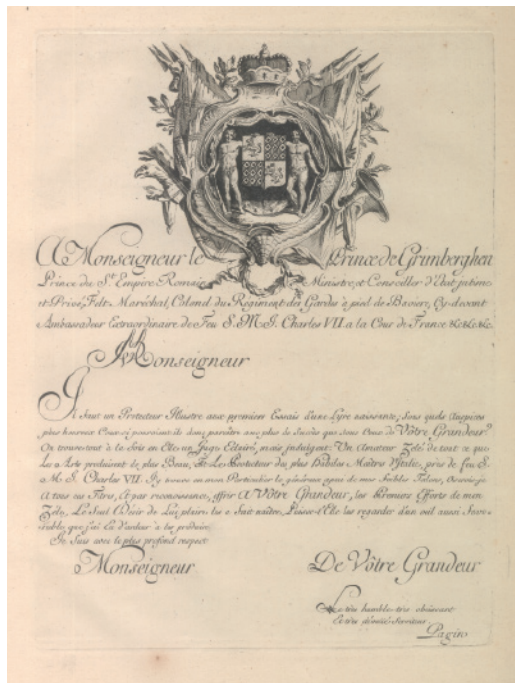 A Monseigneur le Prince de Grimberghen
Prince du St. Empire Romain Ministre, et Conseiller d'Etat intime
et Privé, Feldt-Maréchal, Colonel du Regiment des Gardes a pied de Baviere, Cy-devant
Ambassadeur Extraordinaire de Feu S. M. I. Charles VII. a la Cour de France &c. &c. &c.
Monseigneur
Il faut un Protecteur Illustre aux premiers Essais d'une Lyre naissante; Sous quels Auspices
plus heureux Ceux-ci pouroient-ils donc paraître avec plus de Succés que sous Ceux de Vôtre Grandeur?
On trouve tout à la fois en Elle un Juge Eclairé, mais indulgent: Un Amateur Zelé de tout ce que
Les Arts produisent de plus Beau, et Le Protecteur du plus Habile Maître d'Italie, près de feu S.
M. I. Charles VII. J'y trouve en mon Particulier le généreux apui de mes foibles Talens, Aurois-je
A tous ces Titres, & par reconnoissance, offrir A Vôtre Grandeur, les Premiers Efforts de mon
Zéle, Le Seul Désir de Lui plaire les a fait naître, Puisse-t'Elle les regarder d'un oeil aussi favo-
rable que j'ai eû d'ardeur à les produire.
Je Suis avec le plus profond respect
Monseigneur De Vôtre Grandeur
Le très humble très obéissant
et très dévoüé Serviteur.
Pagin